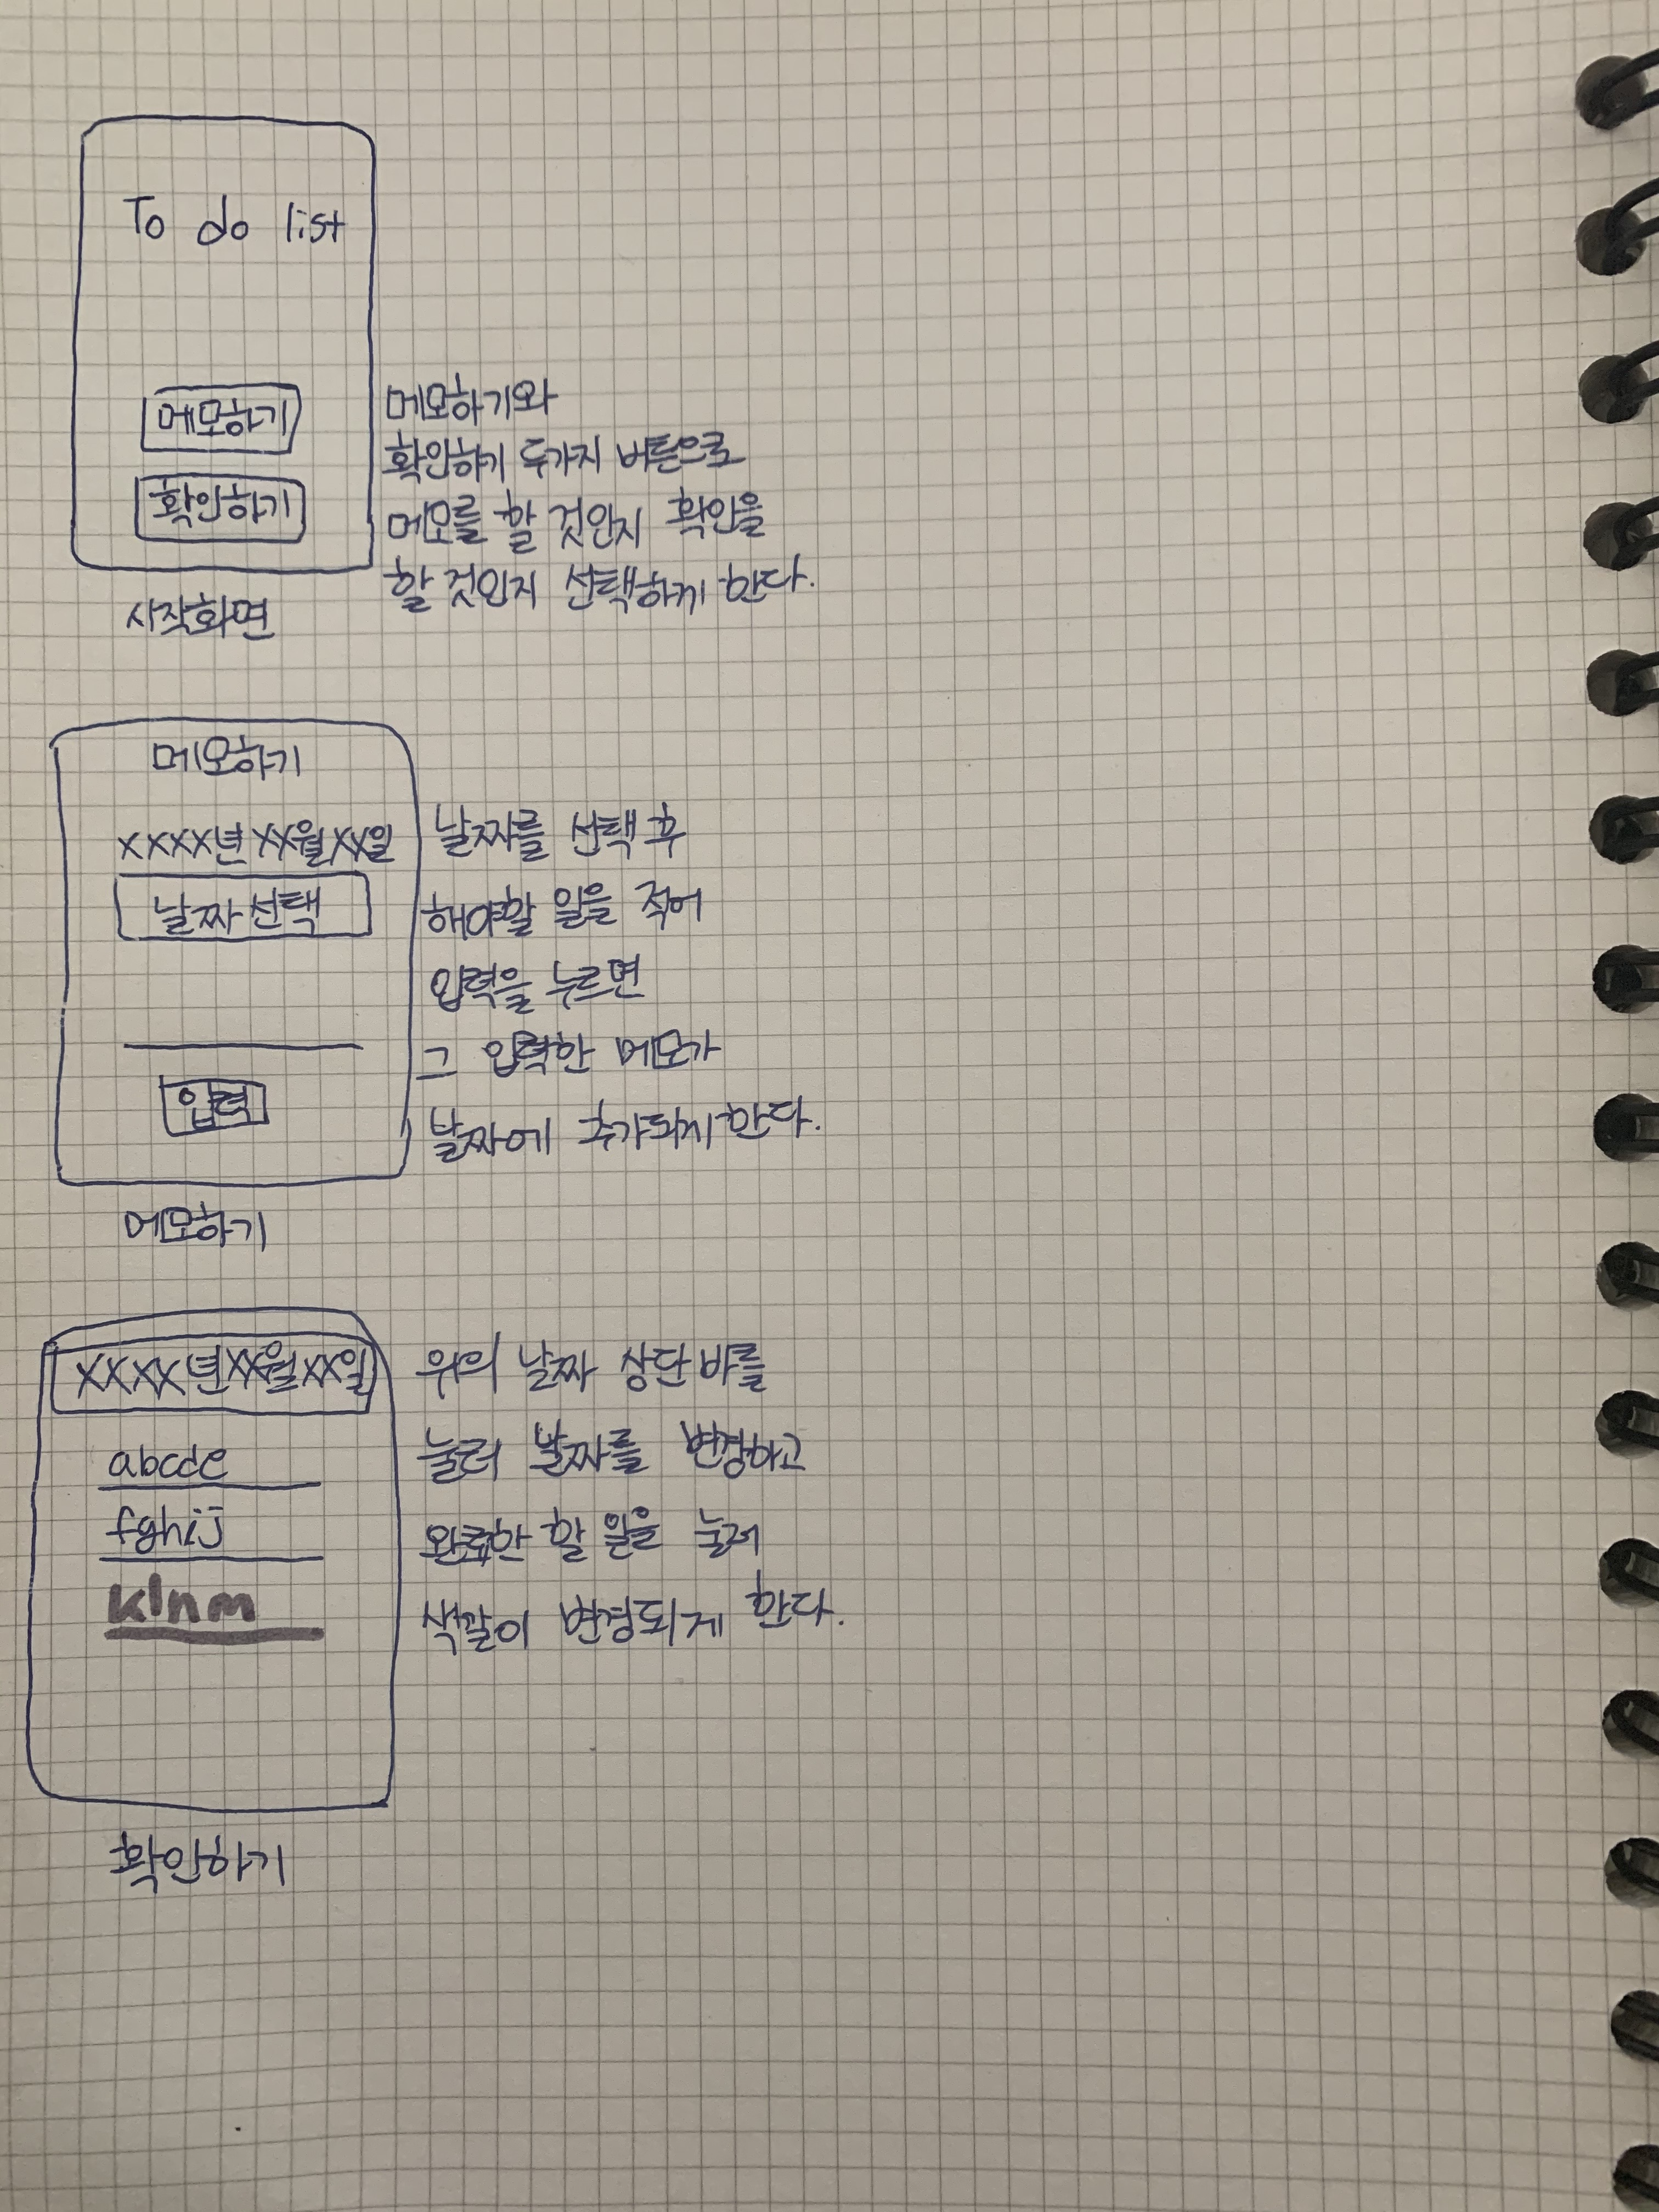 To do list
메모하기
확인하기
메모하기와
확인하기 두가지 버튼으로
메모를 할 것인지 확인을
할 것인지 선택하게 한다.
시작화면
메모하기
XXXX년 XX월 XX일
날짜 선택
입력
날짜를 선택 후
해야할 일을 적어
입력을 누르면
그 입력한 메모가
날짜에 추가되게 한다.
메모하기
XXXX년 XX월 XX일
abcde
fghij
klnm
위의 날짜 상단 바를
눌러 날짜를 변경하고
완료한 할 일을 눌러
색깔이 변경되게 한다.
확인하기